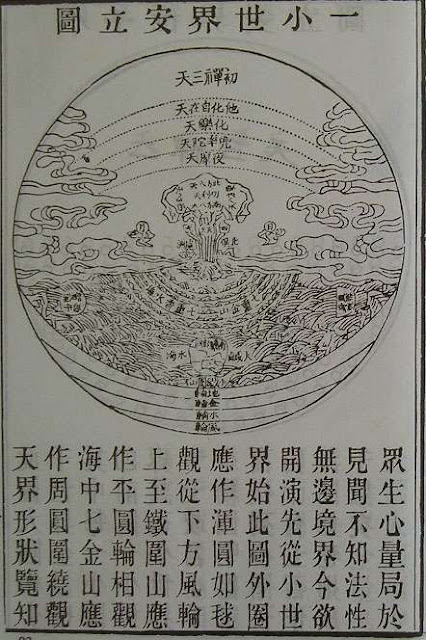 一小世界安立圖
初禪三天
他化自在天
化樂天
兜率陀天
夜摩天
大鹹水海
金輪
水輪
風輪
眾生心量局於
見聞不知法性
無邊境界今欲
開演先從小世
界始此圖外圈
應作渾圓如毬
觀從下方風輪
上至鐵圍山應
作平圓輪相觀
海中七金山應
作周圓圍繞觀
天界形狀覽知